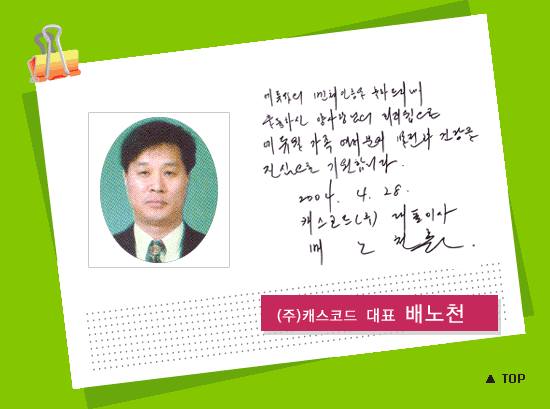 미듬사의 벤처인증을 축하드리며
훌륭하신 양사장님의 리더쉽으로
미듬월 가족 여러분의 발전과 건강을
진심으로 기원합니다.
2004. 4. 28.
캐스코드(주) 대표이사
배 노 천
(주)캐스코드 대표 배노천
▲ TOP